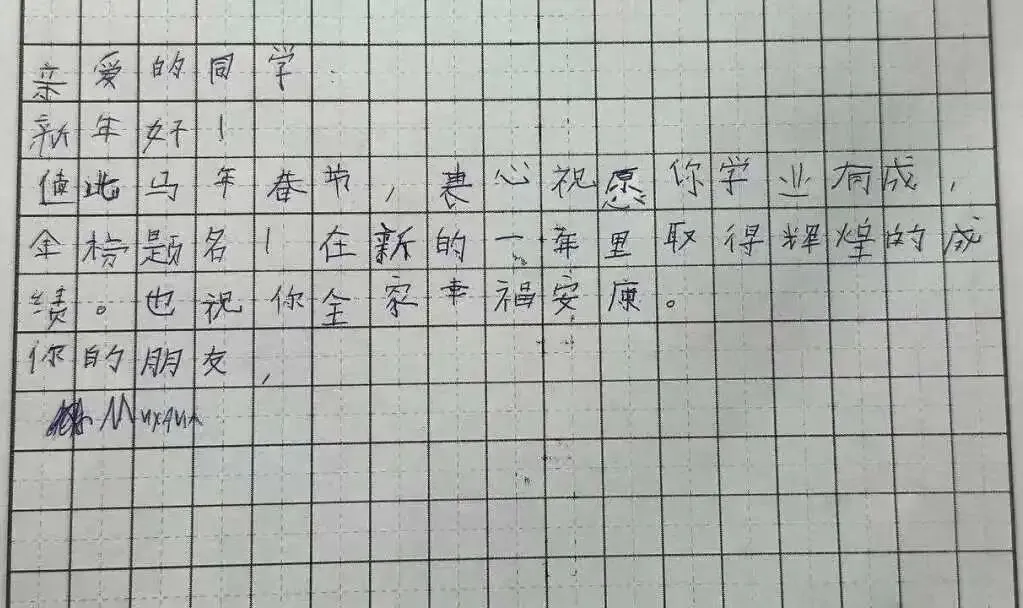 亲爱的同学
新年好!
值此马年春节,衷心祝愿你学业有成,
金榜题名!在新的一年里取得辉煌的成
绩。也祝你全家幸福安康。
你的朋友,
Михаил